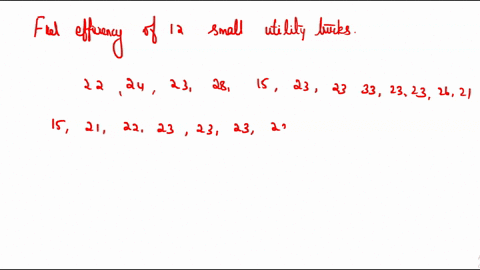 Fuel efferency of 12 small utility trucks.
22, 24, 23, 28, 15, 23, 23 33, 23, 23, 26, 21
15, 21, 22, 23, 23, 23, 2